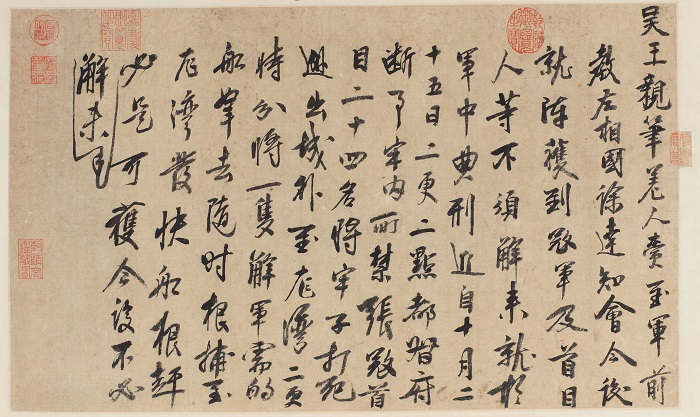 吳王親筆差人賫至軍前
教左相國徐達知會今後
就陣獲到寇軍及首目
人等不須解來就於
軍中典刑近自十月二
十五日二更二點都督府
斷事牢內所禁張寇首
目二十四名將牢子打死
出城外至龍灣二更
時分將一隻解軍需的
船拏去隨時根捕至
龍灣發快船根趕
必是可獲今後不必
解來